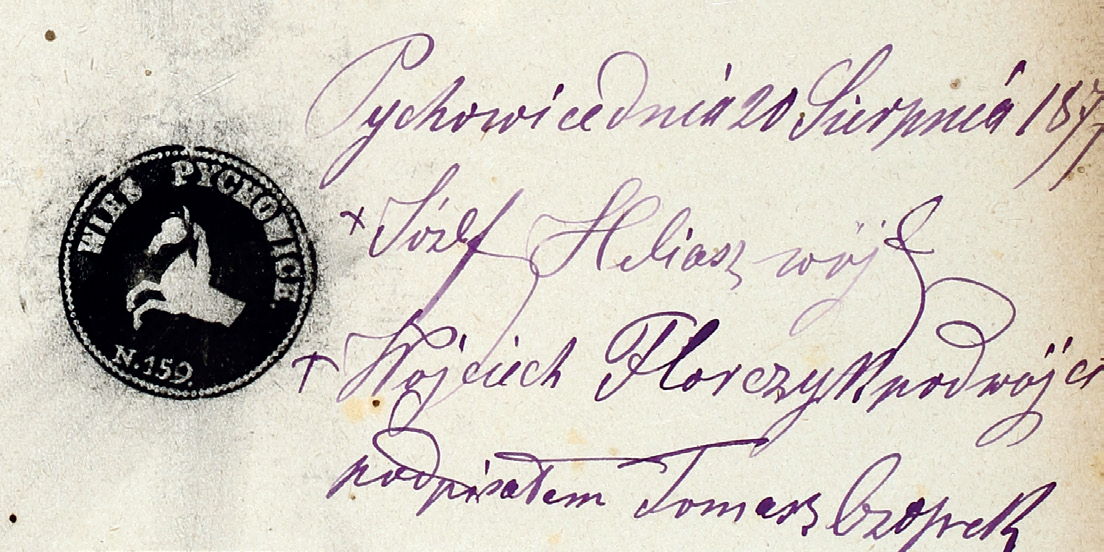 WIEŚ PYCHOWICE
N.159.
Pychowice dnia 20 Sierpnia 1877
+ Józef Heliasz wójt
+ Wojciech Florczyk podwójci
podpisałem Tomasz Czopek